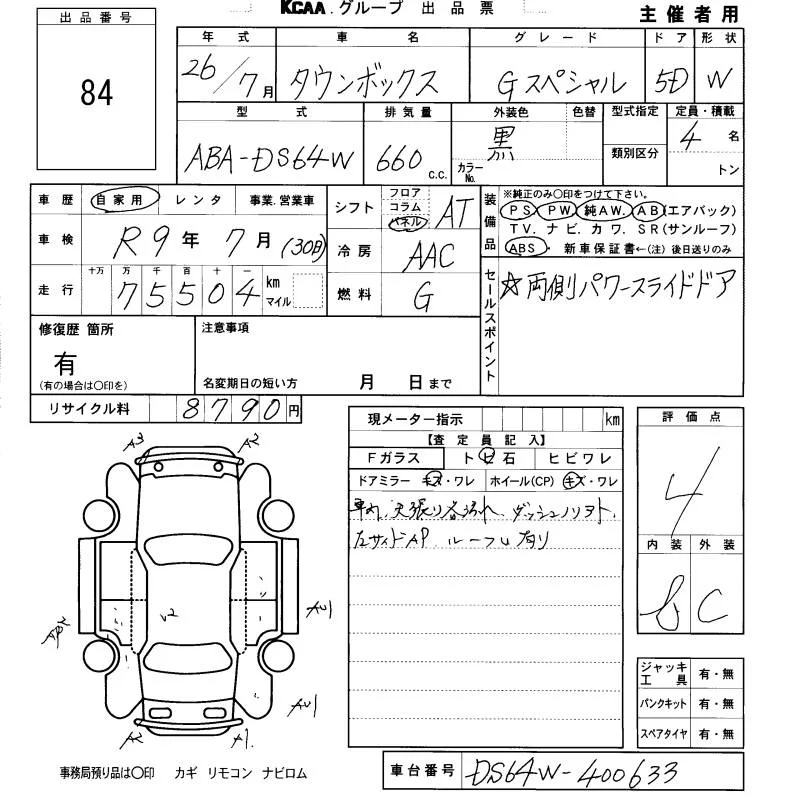 KCAA.グループ 出品票 主催者用
出品番号
84
年式 車名 グレード ドア 形状
26/7月 タウンボックス Gスペシャル 5D W
型式 排気量 外装色 色替 型式指定 定員・積載
ABA-DS64W 660 c.c. 黒 カラーNo. 類別区分 4名 トン
車歴 自家用 レンタ 事業.営業車
シフト フロア コラム パネル AT
装備品 ※純正のみ○印をつけて下さい。
PS. PW. 純AW. AB(エアバック)
TV. ナビ. カワ. SR(サンルーフ)
ABS. 新車保証書←(注) 後日送りのみ
車検 R9年 7月(30日)
冷房 AAC
走行 十万 万 千 百 十 一 75504 km マイル
燃料 G
セールスポイント ☆両側パワースライドドア
修復歴 箇所
有
(有の場合は○印を)
注意事項
名変期日の短い方 月 日まで
リサイクル料 8790円
現メーター指示 km
【査定員記入】
Fガラス トビ石 ヒビワレ
ドアミラー キズ・ワレ ホイール(CP) キズ・ワレ
車内.天張り各汚れ.ダッシュノリヨト.
左サイドAP ルーフU有り
評価点
4
内装 外装
C
A3 A2
AB2 U2 AU1
AU1
A2 A1
ジャッキ工具 有・無
パンクキット 有・無
スペアタイヤ 有・無
事務局預り品は○印 カギ リモコン ナビロム
車台番号 DS64W-400633